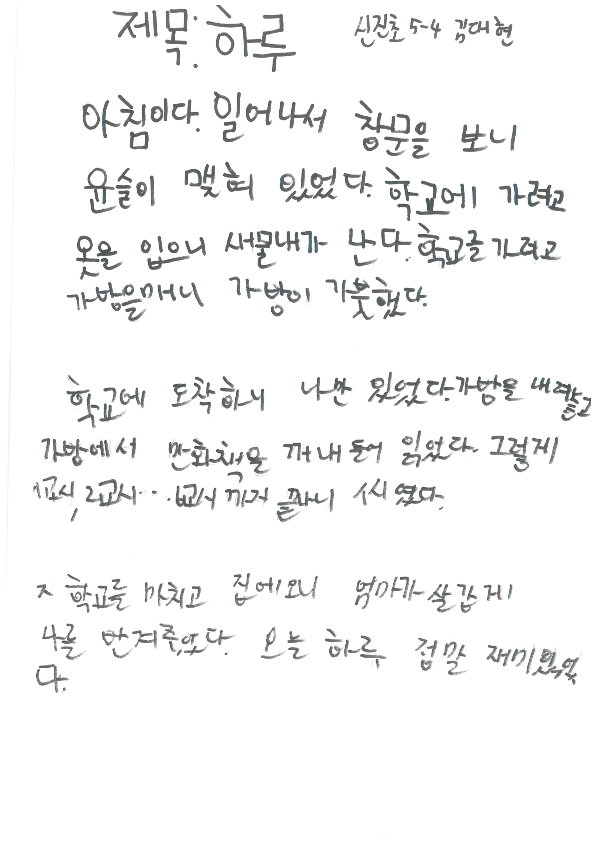 제목: 하루 신진초 5-4 김대현
아침이다. 일어나서 창문을 보니
윤슬이 맺혀 있었다. 학교에 가려고
옷을 입으니 새물내가 난다. 학교를 가려고
가방을 매니 가방이 가붓했다.
학교에 도착하니 나만 있었다. 가방을 내려놓고
가방에서 만화책을 꺼내 들어 읽었다. 그렇게
1교시, 2교시... 6교시 까지 끝나니 4시 였다.
학교를 마치고 집에 오니 엄마가 살갑게
나를 반겨주었다. 오늘 하루 정말 재미있었
다.